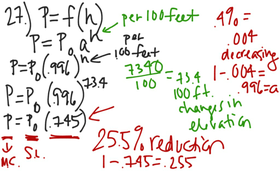 27.) P = f(h)
per 100 feet
P = P₀ a^h
per 100 feet
P = P₀ (.996)^h
P = P₀ (.996)^73.4
P = P₀ (.745)
MC.
S.L.
7340/100 = 73.4
100 ft.
changes in
elevation
.4% =
.004
decreasing
1 - .004 =
.996 = a
25.5% reduction
1 - .745 = .255